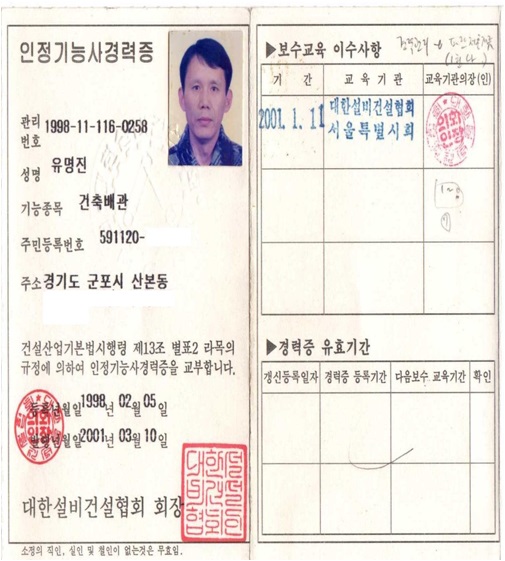 인정기능사경력증
관리번호 1998-11-116-0258
성명 유명진
기능종목 건축배관
주민등록번호 591120-
주소 경기도 군포시 산본동
건설산업기본법시행령 제13조 별표2 라목의
규정에 의하여 인정기능사경력증을 교부합니다.
등록년월일 1998년 02월 05일
년월일 2001년 03월 10일
대한설비건설협회 회장
소정의 직인, 실인 및 철인이 없는것은 무효임.
▶보수교육 이수사항
기 간 교 육 기 관 교육기관의장(인)
2001. 1. 11 대한설비건설협회
서울특별시회
▶경력증 유효기간
갱신등록일자 경력증 등록기간 다음보수 교육기간 확 인